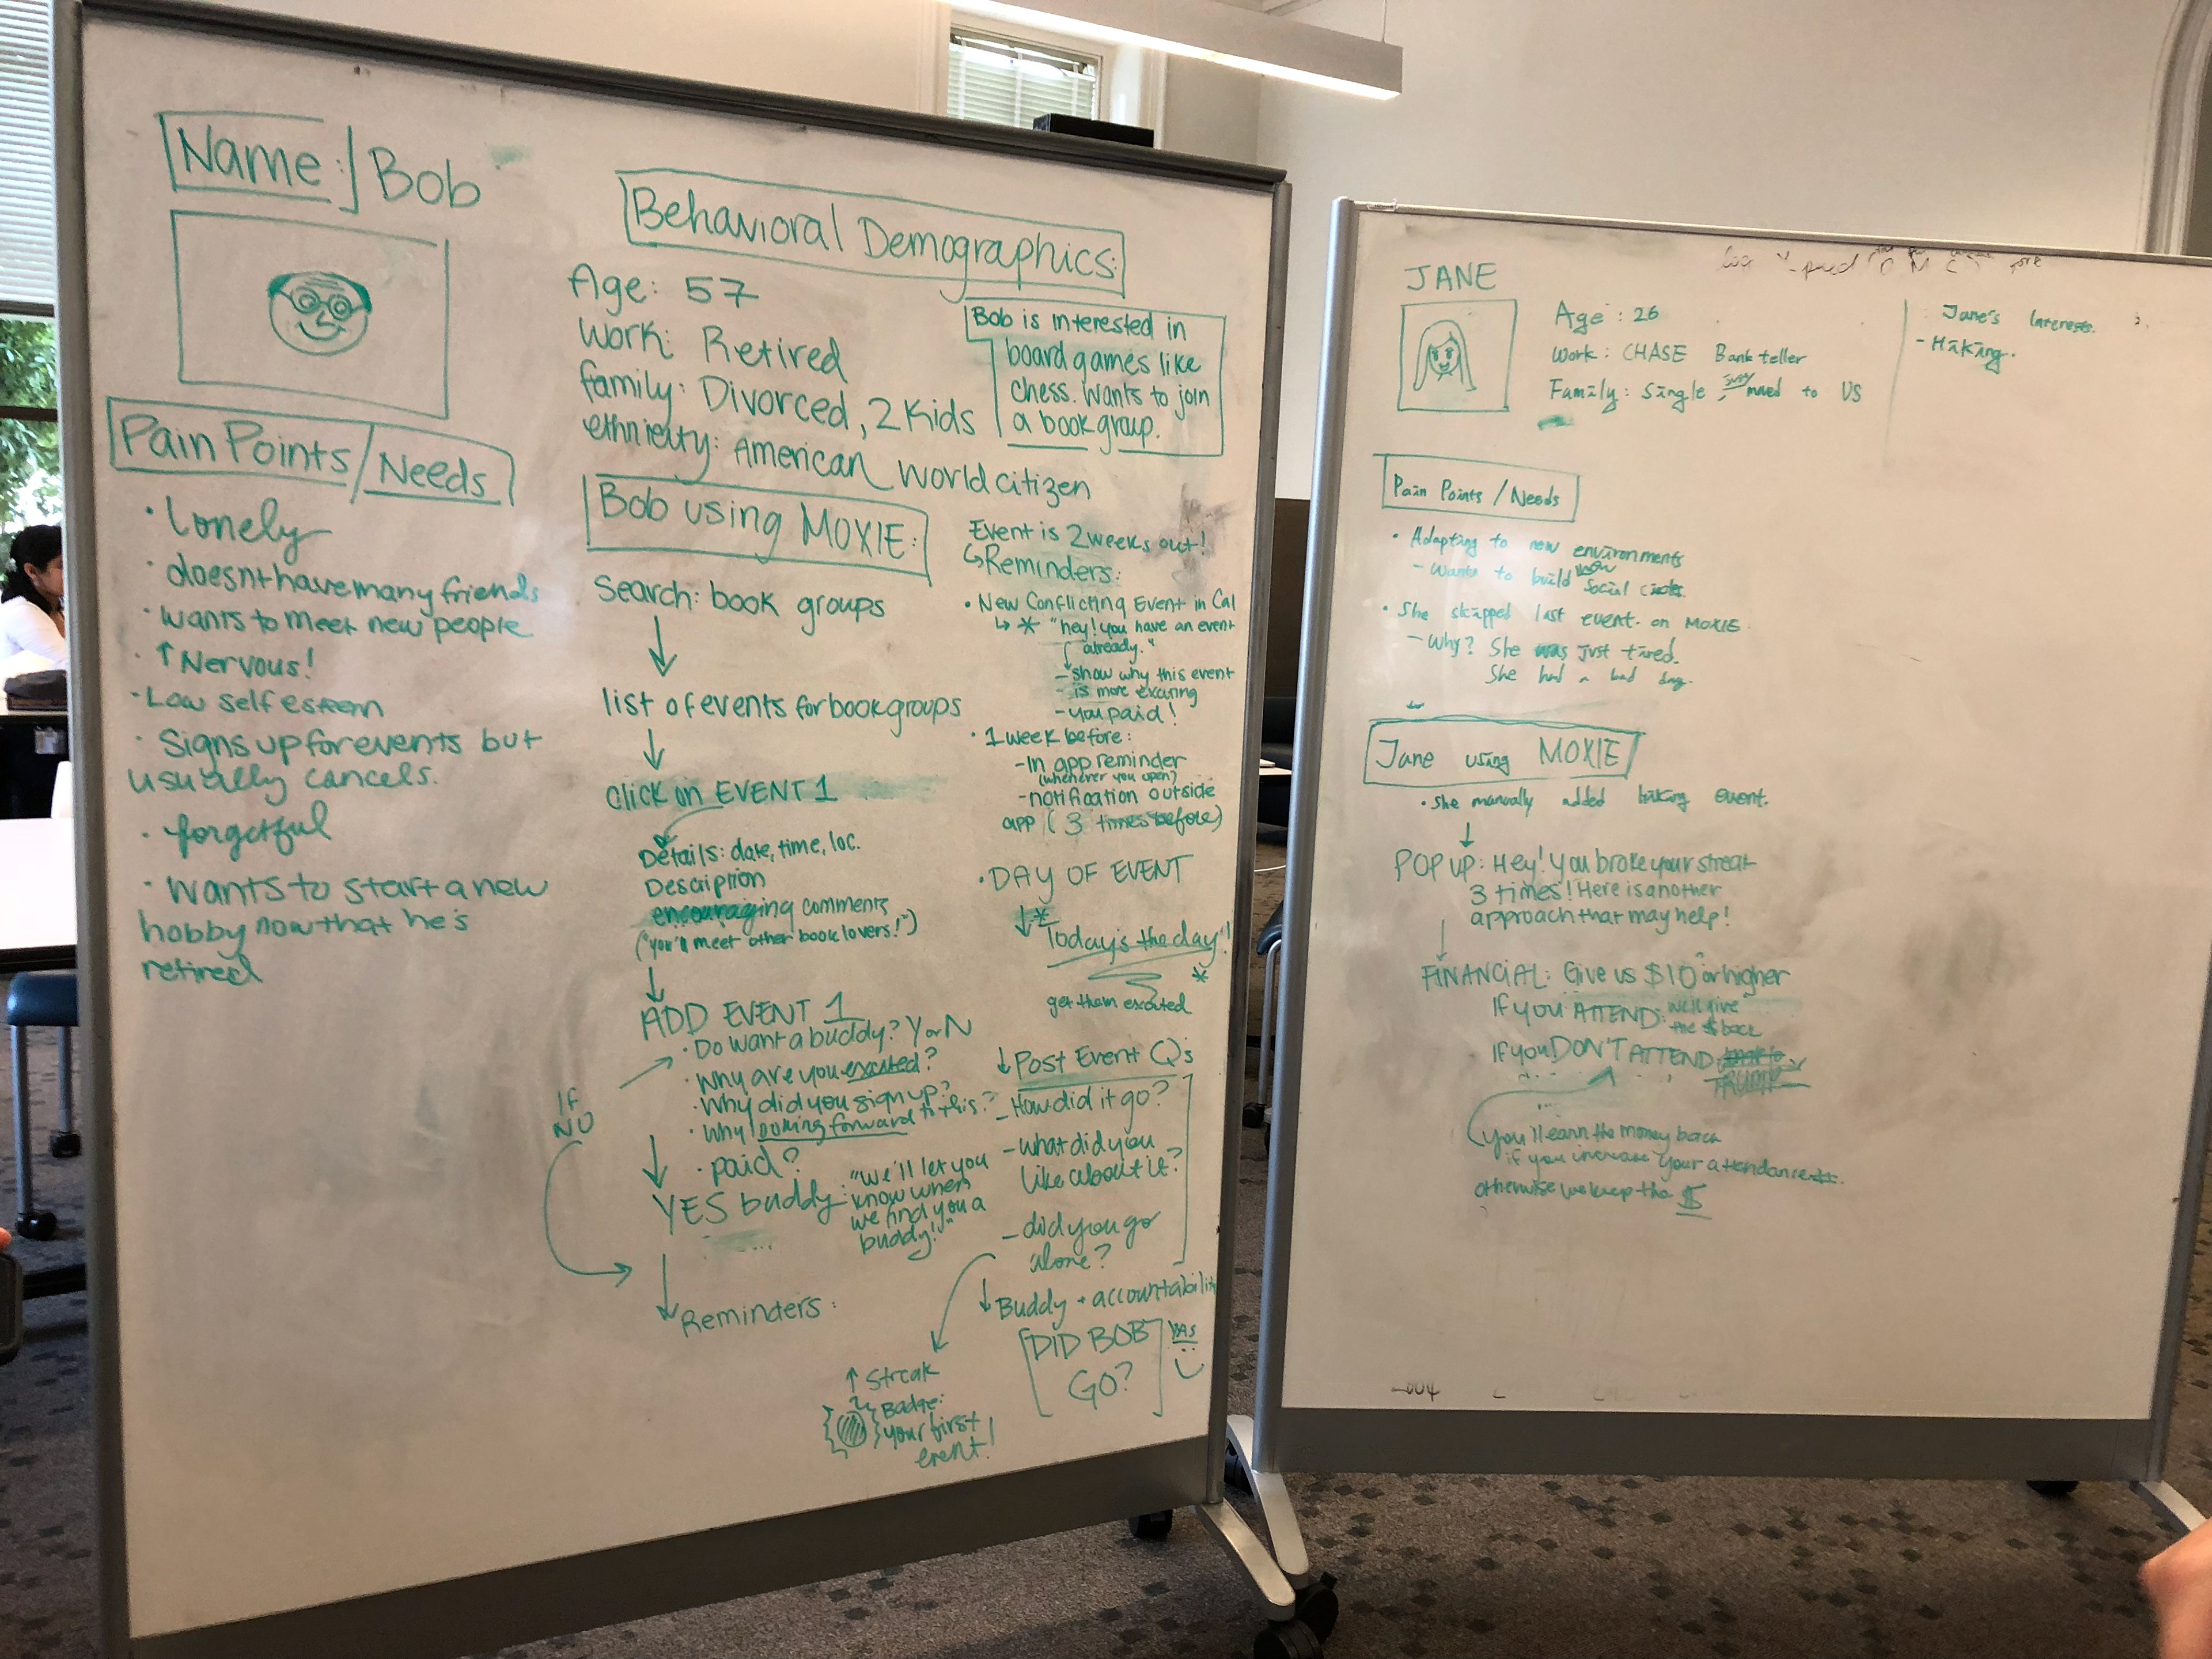 Name: Bob
Pain Points/Needs
· Lonely
· doesnt have many friends
· wants to meet new people
· ↑ Nervous!
· Low self esteem
· Signs up for events but
usually cancels.
· forgetful
· wants to start a new
hobby now that he's
retired
Behavioral Demographics:
Age: 57
Work: Retired
family: Divorced, 2 Kids
ethnicity: American world citizen
Bob is interested in
board games like
chess. Wants to join
a book group.
Bob using MOXIE:
Search: book groups
↓
list of events for book groups
↓
click on EVENT 1
Details: date, time, loc.
Description
encouraging comments
("you'll meet other book lovers!")
↓
ADD EVENT 1
· Do want a buddy? Y or N
· Why are you excited?
· Why did you sign up?
· Why looking forward to this?
· paid?
IF
NO
↓
YES buddy: "We'll let you
know when
we find you a
buddy!"
↓ Reminders:
Event is 2 weeks out!
↳Reminders:
· New Conflicting Event in Cal
↳ * "hey! you have an event
already."
- show why this event
is more exciting
- you paid!
· 1 week before:
- In app reminder
(whenever you open)
- notification outside
app (3 times before)
· DAY OF EVENT
↓ *
"Today's the day"!
*
get them excited
↓ Post Event Q's
- How did it go?
- what did you
like about it?
- did you go
alone?
↓ Buddy + accountability
DID BOB
GO?
YAS
↑ Streak
Badge:
your first
event!
JANE
Age: 26
Work: CHASE Bank teller
Family: Single, just moved to US
Jane's Interests.
- Hiking.
Pain Points / Needs
· Adapting to new environments
- Wants to build new social circles.
· She skipped last event on MOXIE
- Why? She was just tired.
She had a bad day.
Jane using MOXIE
· She manually added hiking event.
↓
POP UP: Hey! You broke your streak
3 times! Here is another
approach that may help!
↓
FINANCIAL: Give us $10 or higher
If you ATTEND: we'll give
the $ back
If you DON'T ATTEND:
TRUMP
you'll earn the money back
if you increase your attendance
otherwise we keep the $